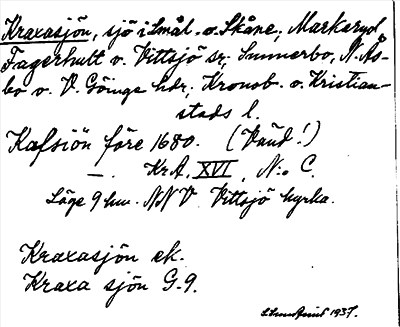 Kraxasjön, sjö i Smål. o. Skåne, Markaryd
Fagerhult o. Vittsjö sr, Sunnerbo, N. Ås-
bo o. V. Göinge hdr, Kronob. o. Kristian-
stads l.
Kafsiön före 1680. (Vänd!)
— . Kr.A. XVI, N:o C.
Läge 9 hm. NNV Vittsjö kyrka.
Kraxasjön ek.
Kraxa sjön G.9.
1937.